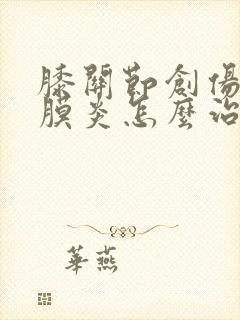 膝關節創傷
膜炎怎麼治
華燕